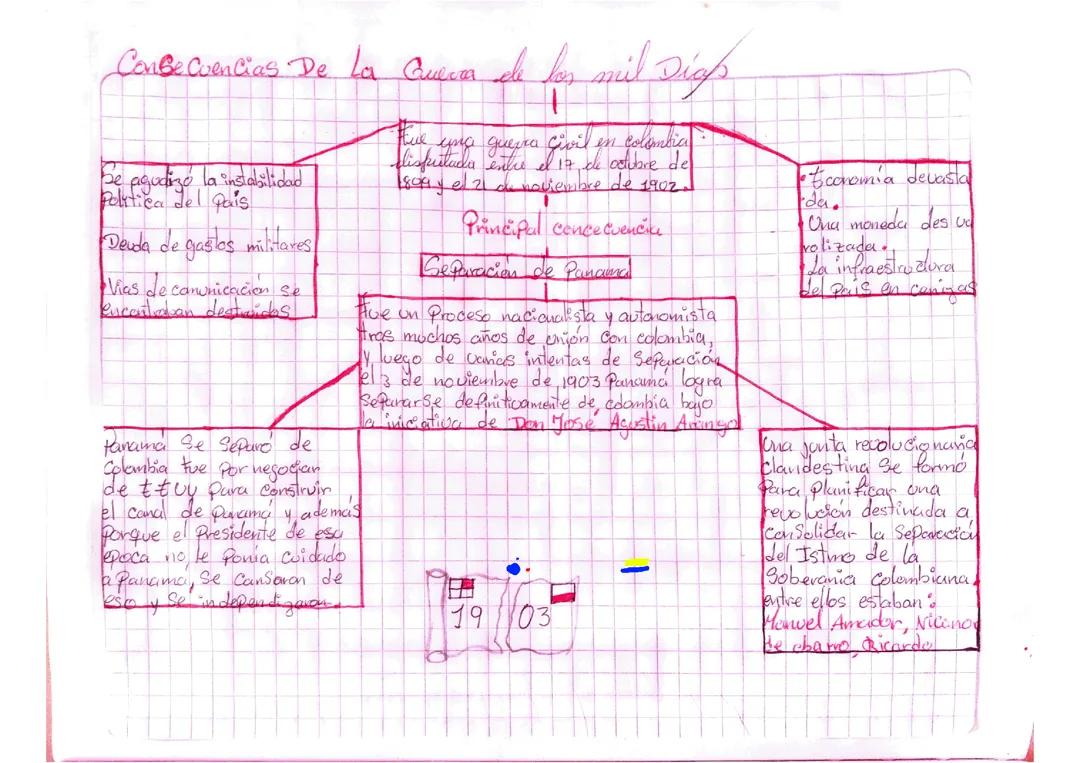 ConseCuencias De La Guerra de los mil Días
Fue una guerra civil en colombia
disputada entre el 17 de octubre de
1899 y el 21 de noviembre de 1902.
Se agudizó la instabilidad
Política del País
Deuda de gastos militares
Vias de comunicación se
encontraban destruidas
• Economía devasta
da.
• Una moneda des va
rolizada.
• La infraestructura
del País en cenizas
Principal concecuencia
Separación de Panama
Fue un Proceso nacionalista y autonomista
tras muchos años de unión con colombia,
y luego de varios intentas de Separación
el 3 de noviembre de 1903 Panamá logra
Separarse definitivamente de colombia bajo
la iniciativa de Don José Agustin Arango
Panamá Se Separó de
Colombia fue Por negociar
de Para construir
el canal de Panamá y además
Porque el Presidente de esa
epoca no le Ponia Cuidado
a Panama, Se Cansaron de
eso y Se independizaron.
Una junta revolucionaria
Clandestina Se formó
Para Planificar una
revolución destinada a
Consolidar la Separación
del Istmo de la
Soberania Colombiana
entre ellos estaban:
Manuel Amador, Nicanor
de Ricardo
19 03